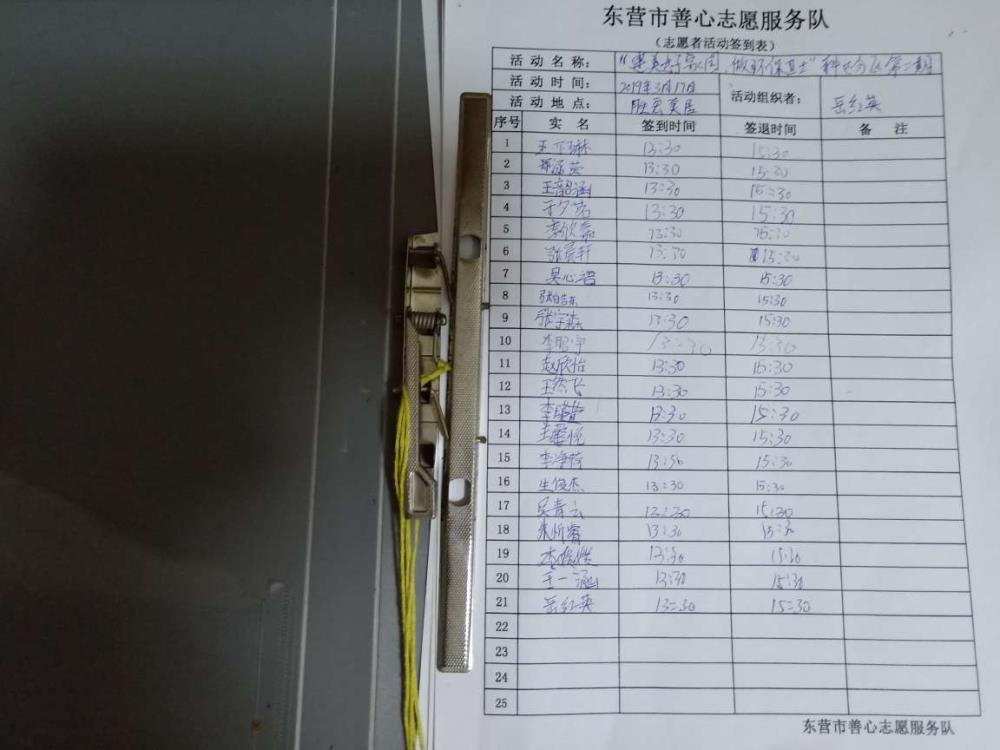 东营市善心志愿服务队
(志愿者活动签到表)
活动名称: "建美好家园,做环保卫士" 第二期
活动时间: 2019年3月17日 活动组织者: 岳红英
活动地点: 胜宏美居
序号 实名 签到时间 签退时间 备注
1 13:30 15:30
2 13:30 15:30
3 王韶涵 13:30 15:30
4 13:30 15:30
5 李欣 13:30 15:30
6 张宸轩 13:30 15:30
7 吴心语 13:30 15:30
8 13:30 15:30
9 张宇 13:30 15:30
10 李昭宇 13:30 15:30
11 赵欣怡 13:30 15:30
12 王然飞 13:30 15:30
13 13:30 15:30
14 13:30 15:30
15 13:30 15:30
16 生俊杰 13:30 15:30
17 吴青云 13:30 15:30
18 13:30 15:30
19 13:30 15:30
20 王一涵 13:30 15:30
21 岳红英 13:30 15:30
22
23
24
25
东营市善心志愿服务队